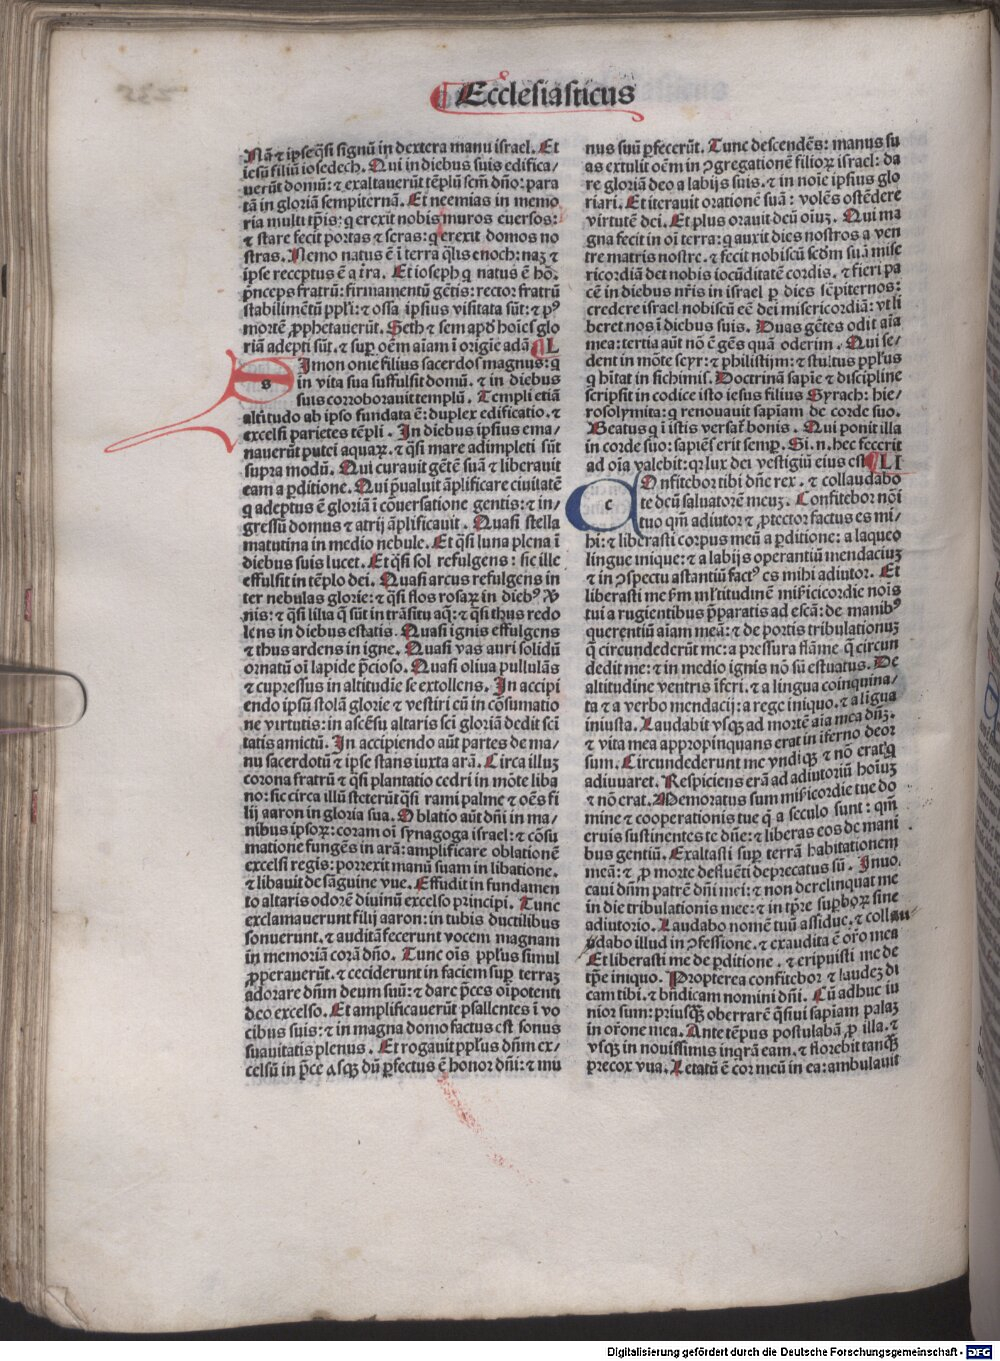 Ecclesiasticus
Nā ⁊ ipse q̄si signū in dextera manu israel. Et
iesū filiū iosedech. Qui in diebus suis edifica/
uerūt domū: ⁊ exaltauerūt tēplū scm̄ dn̄o: para
tā in gloriā sempiternā. Et neemias in memo
ria multi tp̄is: q̄ erexit nobis muros euersos:
⁊ stare fecit portas ⁊ seras: q̄ erexit domos no
stras. Nemo natus ē ī terra q̄lis enoch: naꝫ ⁊
ipse receptus ē a t̄ra. Et ioseph q̄ natus ē hō.
p̄nceps fratrū: firmamentū gētis: rector fratrū
stabilimētū pplī: ⁊ ossa ipsius visitata sūt: ⁊ pꝰ
mortē ꝓphetauerūt. Seth ⁊ sem apd̄ hoīes glo
riā adepti sūt. ⁊ suꝑ oēm aīam ī origīe adā L
s Imon onie filius sacerdos magnus: q̄
in vita sua suffulsit domū. ⁊ in diebus
suis corroborauit templū. Templi etiā
altitudo ab ipso fundata ē: duplex edificatio. ⁊
excelsi parietes tēpli. In diebus ipsius ema/
nauerūt putei aquaꝝ. ⁊ q̄si mare adimpleti sūt
supra modū. Qui curauit gētē suā ⁊ liberauit
eam a ꝑditione. Qui p̄ualuit āplificare ciuitatē
q̄ adeptus ē gloriā ī cōuersatione gentis: ⁊ in/
gressū domus ⁊ atrij āplificauit. Quasi stella
matutina in medio nebule. Et q̄si luna plena ī
diebus suis lucet. Et q̄si sol refulgens: sic ille
effulsit in tēplo dei. Quasi arcus refulgens in
ter nebulas glorie: ⁊ q̄si flos rosaꝝ in diebꝰ v̄
nis: ⁊ q̄si lilia q̄ sūt in trāsitu aq̄: ⁊ q̄si thus redo
lens in diebus estatis. Quasi ignis effulgens
⁊ thus ardens in igne. Quasi vas auri solidū
ornatū oī lapide p̄cioso. Quasi oliua pullulās
⁊ cupressus in altitudīe se extollens. In accipi
endo ipsū stolā glorie ⁊ vestiri eū in cōsumatio
ne virtutis: in ascēsu altaris sci gloriā dedit scī
tatis amictū. In accipiendo aūt partes de ma/
nu sacerdotū ⁊ ipse stans iuxta arā. Circa illuꝫ
corona fratrū ⁊ q̄si plantatio cedri in mōte liba
no: sic circa illū steterūt q̄si rami palme ⁊ oēs fi
lij aaron in gloria sua. Oblatio aūt dn̄i in ma/
nibus ipsoꝝ: coram oī synagoga israel: ⁊ cōsu
matione fungēs in arā: amplificare oblationē
excelsi regis: porrexit manū suam in libatione.
⁊ libauit de sāguine vue. Effudit in fundamen
to altaris odorē diuinū excelso principi. Tunc
exclamauerunt filij aaron: in tubis ductilibus
sonuerunt. ⁊ auditā fecerunt vocem magnam
in memoriā corā dn̄o. Tunc ois ppl̄us simul
ꝓperauerūt. ⁊ ceciderunt in faciem suꝑ terraꝫ
adorare dn̄m deum suū: ⁊ dare p̄ces oīpotenti
deo excelso. Et amplificauerūt psallentes ī vo
cibus suis: ⁊ in magna domo factus est sonus
suauitatis plenus. Et rogauit ppl̄us dn̄m ex/
celsū in p̄ce vsqꝫ dū ꝑfectus ē honor dn̄i: ⁊ mu
nus suū ꝑfecerūt. Tunc descendēs: manus su
as extulit oēm in ꝯgregationē filioꝝ israel: da
re gloriā deo a labijs suis. ⁊ in noīe ipsius glo
riari. Et iterauit orationē suā: volēs ostēdere
virtutē dei. Et plus orauit deū oīuꝫ. Qui ma
gna fecit in oī terra: q̄ auxit dies nostros a ven
tre matris nostre. ⁊ fecit nobiscū scd̄m suā mise
ricordiā det nobis iocūditatē cordis. ⁊ fieri pa
cē in diebus nr̄is in israel ꝑ dies sēpiternos:
credere israel nobiscū eē dei misericordiā: vt li
beret nos ī diebus suis. Duas gētes odit aīa
mea: tertia aūt nō ē gēs quā oderim. Qui se/
dent in mōte seyr: ⁊ philistijm: ⁊ stultus ppl̄us
q̄ hītat in sichimis. Doctrinā sapīe ⁊ discipline
scripsit in codice isto iesus filius Syrach: hie/
rosolymita: q̄ renouauit sapīam de corde suo.
Beatus q̄ ī istis versat̄ bonis. Qui ponit illa
in corde suo: sapiēs erit semꝑ. Si.n.hec fecerit
ad oīa valebit: qr lux dei vestigiū eius est LI
c Onfitebor tibi dn̄e rex. ⁊ collaudabo
te deū saluatorē meuꝫ. Confitebor nōi
tuo qm̄ adiutor ⁊ ꝓtector factus es mi/
hi: ⁊ liberasti corpus meū a ꝑditione: a laqueo
lingue inique: ⁊ a labijs operantiū mendaciuꝫ
⁊ in ꝯspectu astantiū factꝰ es mihi adiutor. Et
liberasti me scd̄m multitudinē miscd̄ie nois
tui a rugientibus p̄paratis ad escā: de manibꝰ
querentiū aīam meā: ⁊ de portis tribulationuꝫ
q̄ circundederūt me: a pressura flāme q̄ circun
dedit me: ⁊ in medio ignis nō sū estuatus. De
altitudine ventris īferi. ⁊ a lingua coinquina/
ta ⁊ a verbo mendacij: a rege iniquo. ⁊ a ligua
iniusta. Laudabit vsqꝫ ad mortē aīa mea dn̄ꝫ.
⁊ vita mea appropinquans erat in īferno deor
sum. Circundederunt me vndiqꝫ ⁊ nō erat q̄
adiuuaret. Respiciens erā ad adiutoriū hoīuꝫ
⁊ nō erat. Memoratus sum mīscd̄ie tue do
mine ⁊ cooperationis tue q̄ a seculo sunt: qm̄
eruis sustinentes te dn̄e: ⁊ liberas eos de mani
bus gentiū. Exaltasti suꝑ terrā habitationem
meā: ⁊ ꝓ morte defluēti deprecatus sū. Inuo
caui dn̄m patrē dn̄i mei: ⁊ non derelinquat me
in die tribulationis mee: ⁊ in tp̄re suꝑboꝝ sine
adiutorio. Laudabo nomē tuū assidue. ⁊ collau-
dabo illud in ꝯfessione. ⁊ exaudita ē or̄o mea
Et liberasti me de ꝑditione. ⁊ eripuisti me de
tp̄e iniquo. Propterea confitebor ⁊ laudeꝫ di
cam tibi. ⁊ bn̄dicam nomini dn̄i. Cū adhuc iu
nior sum: priusqꝫ oberrarē q̄siui sapīam palaꝫ
in or̄one mea. Ante tēpus postulabā ꝓ illa. ⁊
vsqꝫ in nouissimis inqrā eam. ⁊ florebit tanqꝫ
precox vua. Letatū ē cor meū in ea: ambulauit
Digitalisierung gefördert durch die Deutsche Forschungsgemeinschaft - DFG